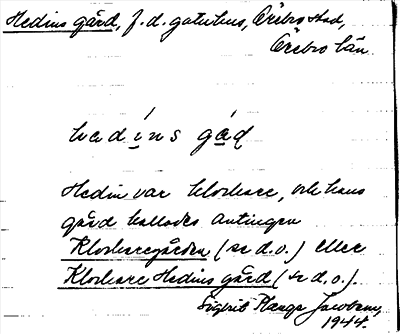 Hedins gård, f.d. gatuhus, Örebro stad,
Örebro län.
hedíns gá̱d
Hedin var klockare, och hans
gård kallades antingen
Klockaregården (se d.o.) eller
Klockare Hedins gård (se d.o.).
Sigfrid Jacobsen
1944.